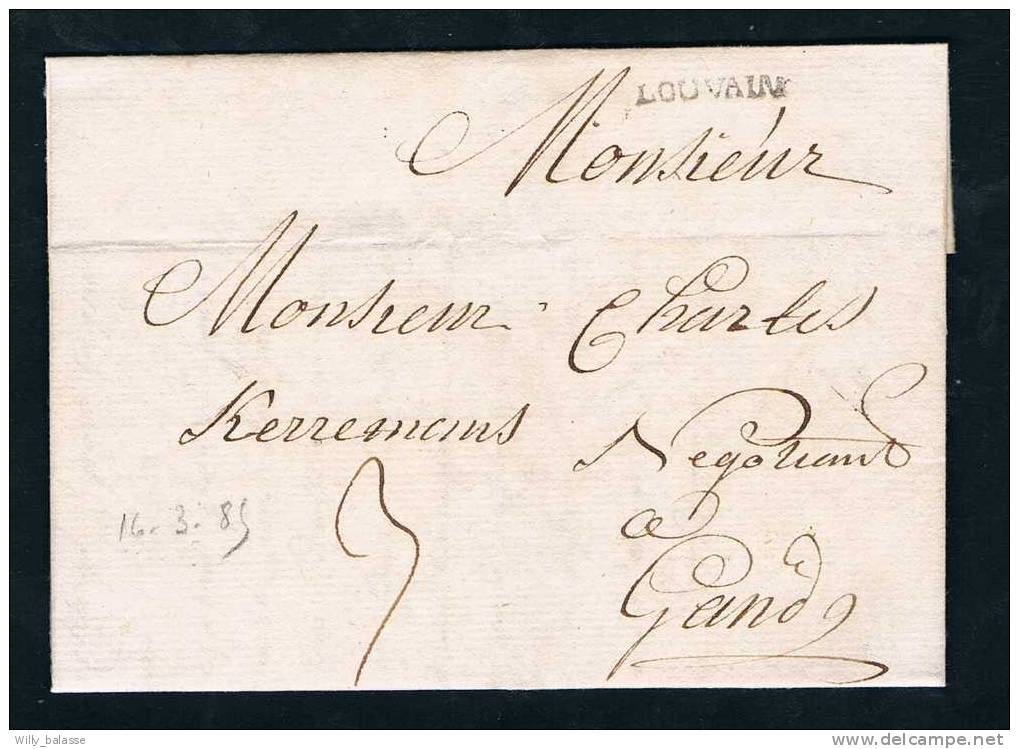 LOUVAIN
Monsieur
Monsieur Charles
Kerremans Negotiant
a
Gand
3
16. 3. 85
Willy_balasse
www.delcampe.net